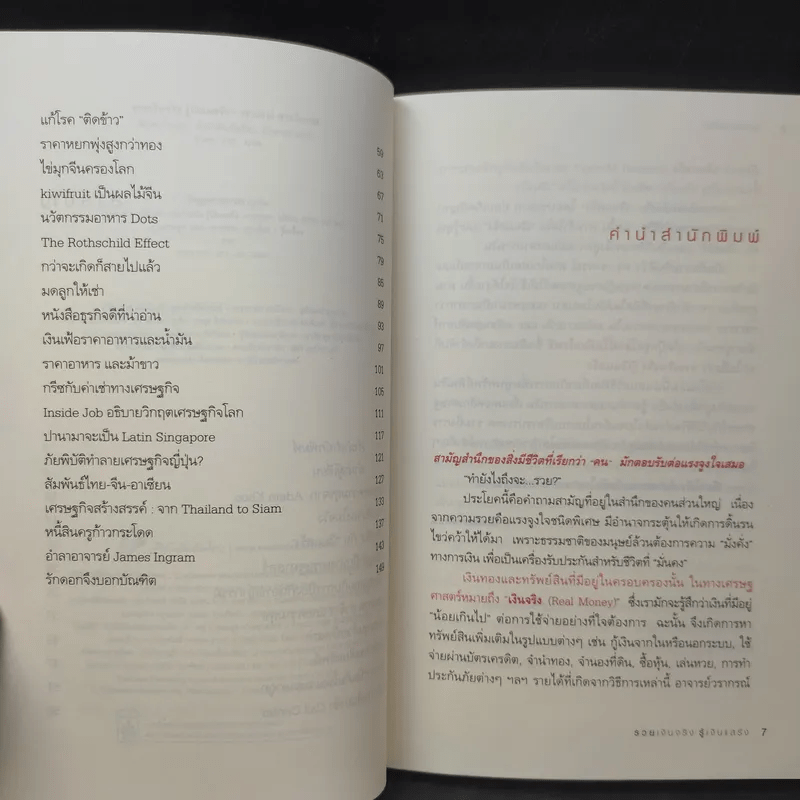 แก้โรค “ติดข้าว”
ราคาหยกพุ่งสูงกว่าทอง 59
ไข่มุกจีนครองโลก 63
kiwifruit เป็นผลไม้จีน 67
นวัตกรรมอาหาร Dots 71
The Rothschild Effect 75
กว่าจะเกิดก็สายไปแล้ว 79
มดลูกให้เช่า 85
หนังสือธุรกิจดีที่น่าอ่าน 89
เงินเฟ้อราคาอาหารและน้ำมัน 93
ราคาอาหาร และม้าขาว 97
กรีซกับค่าเช่าทางเศรษฐกิจ 101
Inside Job อธิบายวิกฤตเศรษฐกิจโลก 105
ปานามาจะเป็น Latin Singapore 111
ภัยพิบัติทำลายเศรษฐกิจญี่ปุ่น? 117
สัมพันธ์ไทย-จีน-อาเซียน 121
เศรษฐกิจสร้างสรรค์ : จาก Thailand to Siam 127
หนี้สินครูก้าวกระโดด 133
อำลาอาจารย์ James Ingram 137
รักดอกจึงบอกบัณฑิต 143
149
คำนำสำนักพิมพ์
สามัญสำนึกของสิ่งมีชีวิตที่เรียกว่า “คน” มักตอบรับต่อแรงจูงใจเสมอ
“ทำยังไงถึงจะ...รวย?”
ประโยคนี้คือคำถามสามัญที่อยู่ในสำนึกของคนส่วนใหญ่ เนื่อง
จากความรวยคือแรงจูงใจชนิดพิเศษ มีอำนาจกระตุ้นให้เกิดการดิ้นรน
ไขว่คว้าให้ได้มา เพราะธรรมชาติของมนุษย์ล้วนต้องการความ “มั่งคั่ง”
ทางการเงิน เพื่อเป็นเครื่องรับประกันสำหรับชีวิตที่ “มั่นคง”
เงินทองและทรัพย์สินที่มีอยู่ในครอบครองนั้น ในทางเศรษฐ
ศาสตร์หมายถึง “เงินจริง (Real Money)” ซึ่งเรามักจะรู้สึกว่าเงินที่มีอยู่
“น้อยเกินไป” ต่อการใช้จ่ายอย่างที่ใจต้องการ ฉะนั้น จึงเกิดการหา
ทรัพย์สินเพิ่มเติมในรูปแบบต่างๆ เช่น กู้เงินจากในหรือนอกระบบ, ใช้
จ่ายผ่านบัตรเครดิต, จำนำทอง, จำนองที่ดิน, ซื้อหุ้น, เล่นหวย, การทำ
ประกันภัยต่างๆ ฯลฯ รายได้ที่เกิดจากวิธีการเหล่านี้ อาจารย์วรากรณ์
รวยเงินจริง รู้เงินเสริง 7